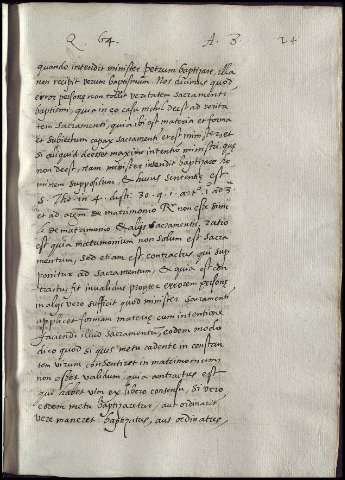 Q. 64. A. 3 24
quando intendit minister petrum baptizare, ille
non recipit verum baptismum. Nos dicimus quod
error personæ non tollit veritatem sacramenti
baptismi, quia in eo casu nihil deest ad verita
tem sacramenti, quia ibi est materia et forma
et subiectum capax sacramenti et est minister, et
si aliquid deesset maxime intentio ministri, que
non deest, nam minister intendit baptizare ho
minem suppositum, & huius sententiæ est
s. Tho. in 4. dist. 30. q. 1. art. 1. ad 3.
et ad de matrimonio Rr non esse simi
le de matrimonio & alijs sacramentis, ratio
est quia matrimonium non solum est sacra
mentum, sed etiam est contractus qui sup
ponitur ad sacramentum, & quia est con
tractus fit invalidus propter errorem personæ
in alijs vero sufficit quod minister sacramenti
applicet formam materiæ cum intentione
faciendi illud sacramentum, eodem modo
dico quod si quis metu cadente in constan
tem virum consentiret in matrimonium,
non esset validum, quia contractus est
qui habet vim ex libero consensu, si vero
eodem metu baptizaretur, aut ordinaretur,
vere maneret baptizatus, aut ordinatus,